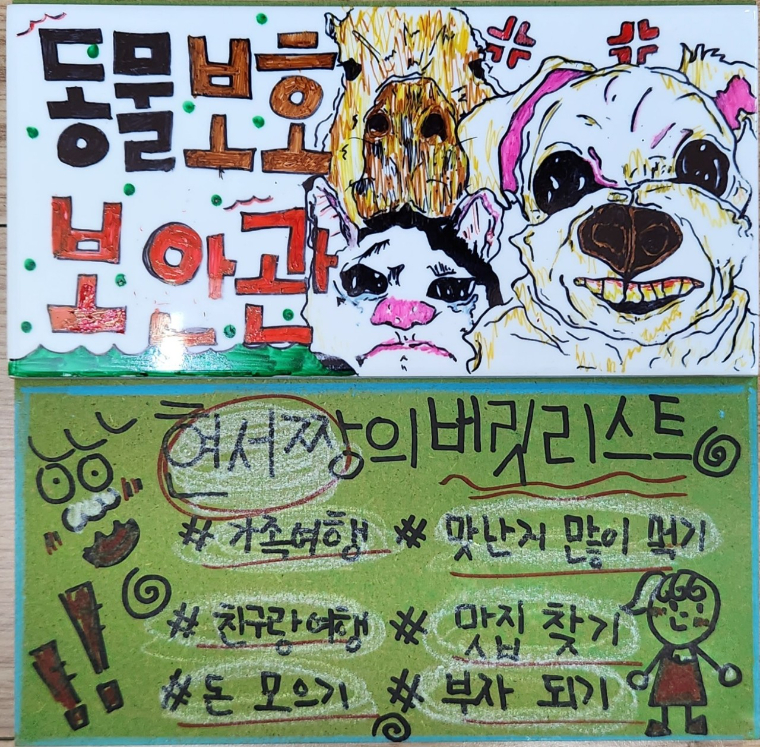 동물보호
보안관
현서짱의 버킷리스트
# 가족여행 # 맛난거 많이 먹기
# 친구랑여행 # 맛집 찾기
# 돈 모으기 # 부자 되기